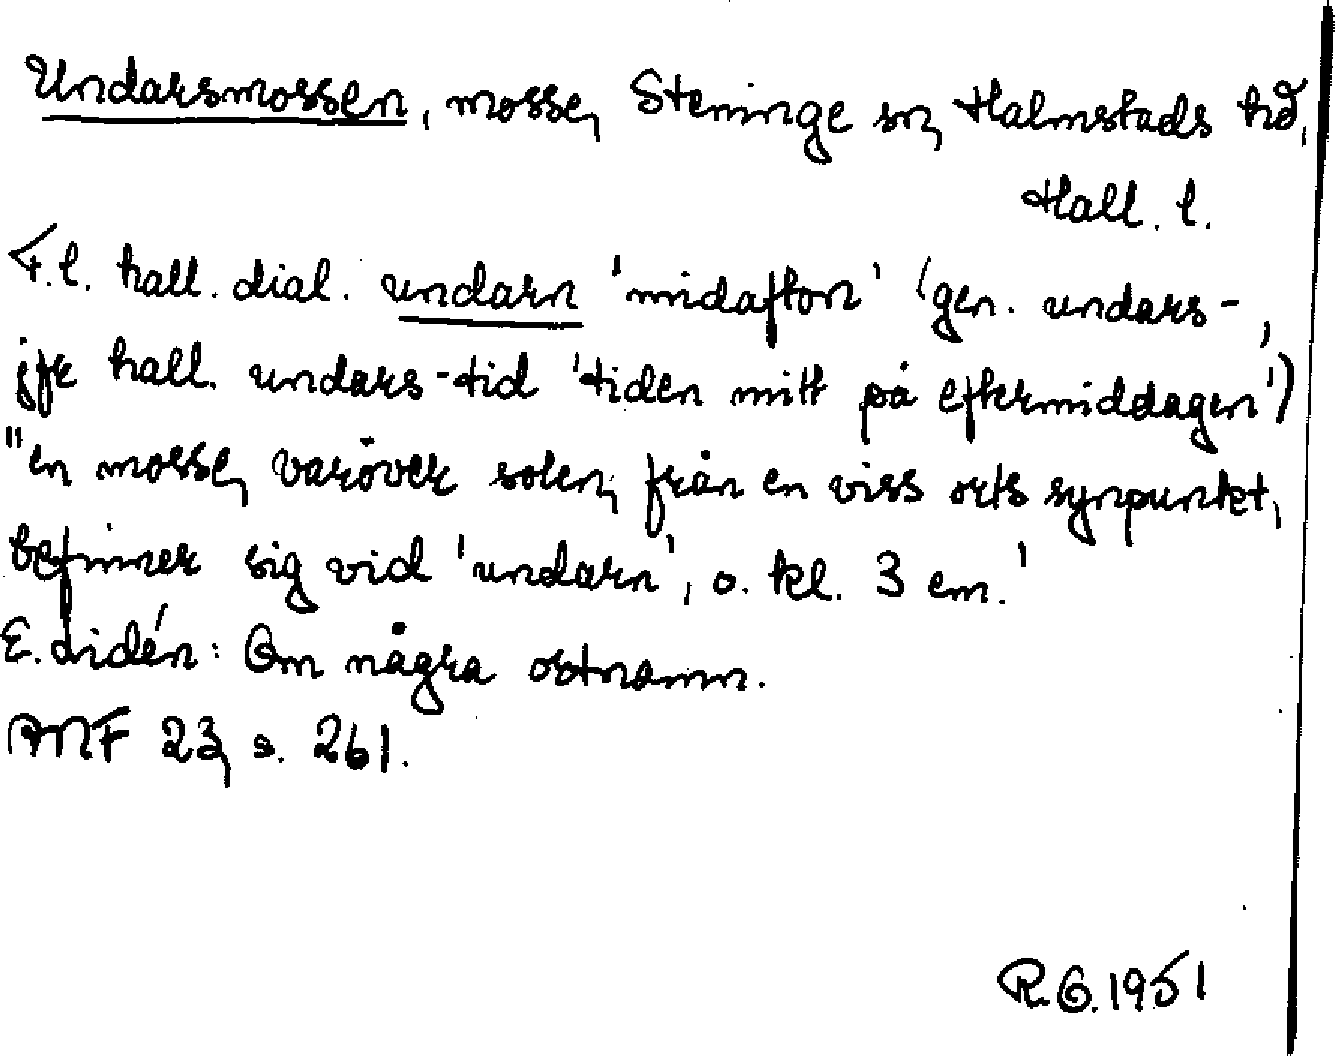 Undarsmossen, mosse, Steninge sn, Halmstads hd,
Hall. l.
F.l. hall. dial. undarn 'midafton' (gen. undars-,
jfr hall. undars-tid 'tiden mitt på eftermiddagen')
"en mosse, varöver solen, från en viss orts synpunkt,
befinner sig vid 'undarn', o. kl. 3 em.'
E. Lidén: Om några ortnamn.
ANF 23, s. 261.
R.G. 1951